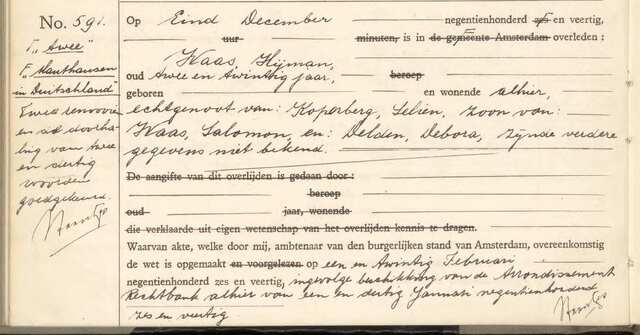 No. 591.
Op Eind December negentienhonderd en veertig,
uur minuten, is in de gemeente Amsterdam overleden :
Haas, Hijman,
oud twee en twintig jaar, beroep
geboren en wonende alhier,
echtgenoot van: Koperberg, Selien, zoon van:
Haas, Salomon, en: Delden, Debora, zijnde verdere
gegevens niet bekend.
De aangifte van dit overlijden is gedaan door :
beroep
oud jaar, wonende
die verklaarde uit eigen wetenschap van het overlijden kennis te dragen.
Waarvan akte, welke door mij, ambtenaar van den burgerlijken stand van Amsterdam, overeenkomstig
de wet is opgemaakt en voorgelezen op een en twintig Februari
negentienhonderd zes en veertig, ingevolge beschikking van de Arrondissement
Rechtbank alhier van een en dertig Januari negentienhonderd
zes en veertig.
1, "twee"
2, "Mauthausen
in Duitschland"
Twee renvooien
en de doorha-
ling van twee
en dertig
woorden
goedgekeurd.